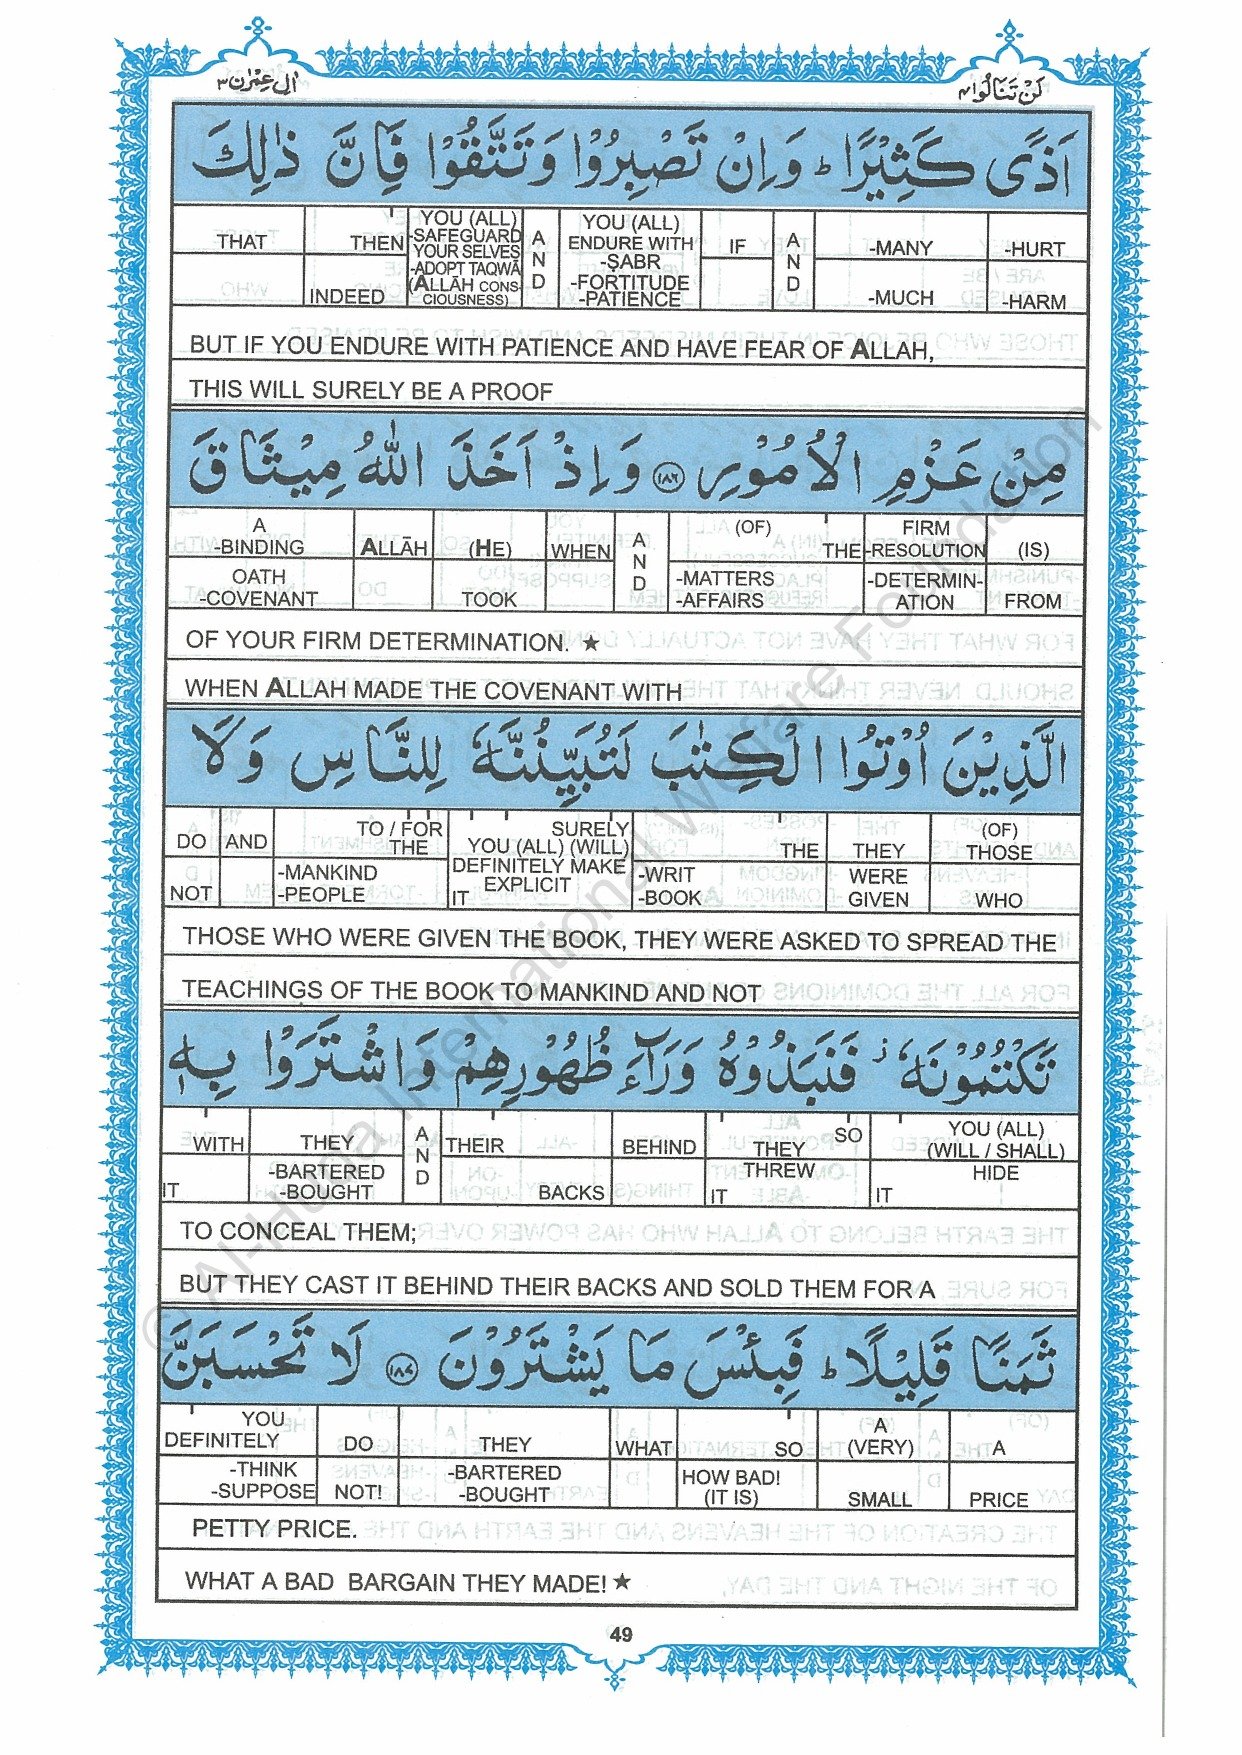 اٰل عِمْرٰن ٣
لَنْ تَنَالُوا ٤
اَذًى كَثِيْرًا ؕ وَاِنْ تَصْبِرُوْا وَتَتَّقُوْا فَاِنَّ ذٰلِكَ
THAT THEN INDEED YOU (ALL) -SAFEGUARD YOUR SELVES -ADOPT TAQWĀ (ALLĀH CONSCIOUSNESS) AND YOU (ALL) ENDURE WITH -ṢABR -FORTITUDE -PATIENCE IF AND -MANY -MUCH -HURT -HARM
BUT IF YOU ENDURE WITH PATIENCE AND HAVE FEAR OF ALLAH,
THIS WILL SURELY BE A PROOF
مِنْ عَزْمِ الْاُمُوْرِ ﴿١٨٦﴾ وَاِذْ اَخَذَ اللّٰهُ مِيْثَاقَ
A -BINDING OATH -COVENANT ALLĀH (HE) TOOK WHEN AND (OF) THE -MATTERS -AFFAIRS FIRM -RESOLUTION -DETERMINATION (IS) FROM
OF YOUR FIRM DETERMINATION. ★
WHEN ALLAH MADE THE COVENANT WITH
الَّذِيْنَ اُوْتُوا الْكِتٰبَ لَتُبَيِّنُنَّهٗ لِلنَّاسِ وَلَا
DO NOT AND TO / FOR THE -MANKIND -PEOPLE SURELY YOU (ALL) (WILL) DEFINITELY MAKE EXPLICIT IT THE -WRIT -BOOK THEY WERE GIVEN (OF) THOSE WHO
THOSE WHO WERE GIVEN THE BOOK, THEY WERE ASKED TO SPREAD THE
TEACHINGS OF THE BOOK TO MANKIND AND NOT
تَكْتُمُوْنَهٗ ؗ فَنَبَذُوْهُ وَرَآءَ ظُهُوْرِهِمْ وَاشْتَرَوْا بِهٖ
WITH IT THEY -BARTERED -BOUGHT AND THEIR BACKS BEHIND SO THEY THREW IT YOU (ALL) (WILL / SHALL) HIDE IT
TO CONCEAL THEM;
BUT THEY CAST IT BEHIND THEIR BACKS AND SOLD THEM FOR A
ثَمَنًا قَلِيْلًا ؕ فَبِئْسَ مَا يَشْتَرُوْنَ ﴿١٨٧﴾ لَا تَحْسَبَنَّ
YOU DEFINITELY -THINK -SUPPOSE DO NOT! THEY -BARTERED -BOUGHT WHAT SO HOW BAD! (IT IS) A (VERY) SMALL A PRICE
PETTY PRICE.
WHAT A BAD BARGAIN THEY MADE! ★
49
© Al-Huda International Welfare Foundation